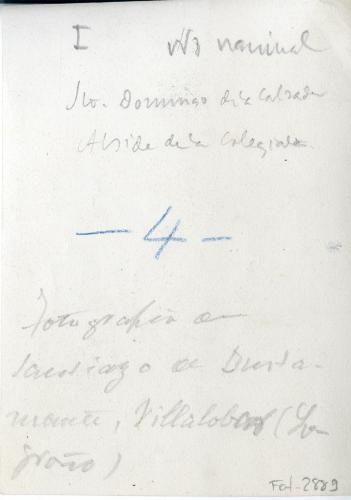 I
nominal
Sto. Domingo de la Calzada
Abside de la Colegiata
- 4 -
Fotografía de
Santiago de Busta-
mante, Villalobos (Lo-
groño)
Fot-2889